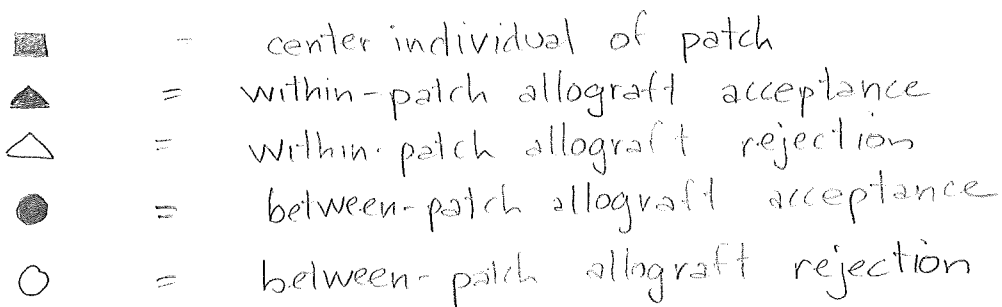 = center individual of patch
= within-patch allograft acceptance
= within-patch allograft rejection
= between-patch allograft acceptance
= between-patch allograft rejection